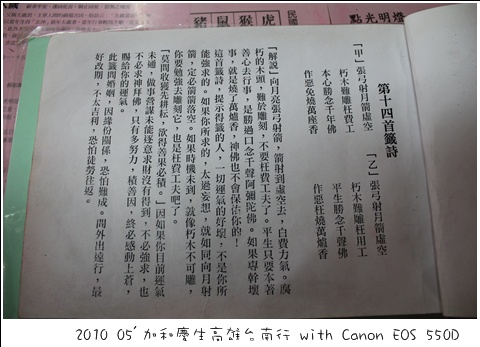 第十四首籤詩
【甲】張弓射月箭虛空
朽木難雕枉費工
本心勝念千年佛
作惡免燒萬座香
【乙】張弓射月箭虛空
朽木難雕枉用工
平生勝念千聲佛
作惡枉燒萬爐香
【解說】向月亮張弓射箭,箭射到虛空去,白費力氣。腐
朽的木頭,難於雕刻,不要枉費工夫了。平生只要本著
善心去行事,是勝過口念千聲阿彌陀佛。如果專幹壞
事,就是燒了萬爐香,神佛也不會保佑你的!
這首籤詩,提示得籤的人,一切運氣的好壞,不是你所
能強求的。如果你所求的,太過妄想,就如同向月射
箭,定必箭箭落空。如果時機未到,就像朽木不可雕,
你要勉強去雕刻它,也是枉費工夫吧了。
【莫問收獲先耕耘,欲得善果必積。】因如果你目前運氣
未通,做事營謀未能逐意求財沒有得到,不必強求,也
不必求神拜佛,只有多努力,積善因,終必感動上蒼,
賜給你的運氣。
此籤問婚姻,因緣份關係,恐怕難成。問外出遠行,最
好改期,不太吉利,恐怕徒勞往返。
豬鼠猴虎
民國
點光明燈
2010 05' 加和慶生高雄台南行 with Canon EOS 550D